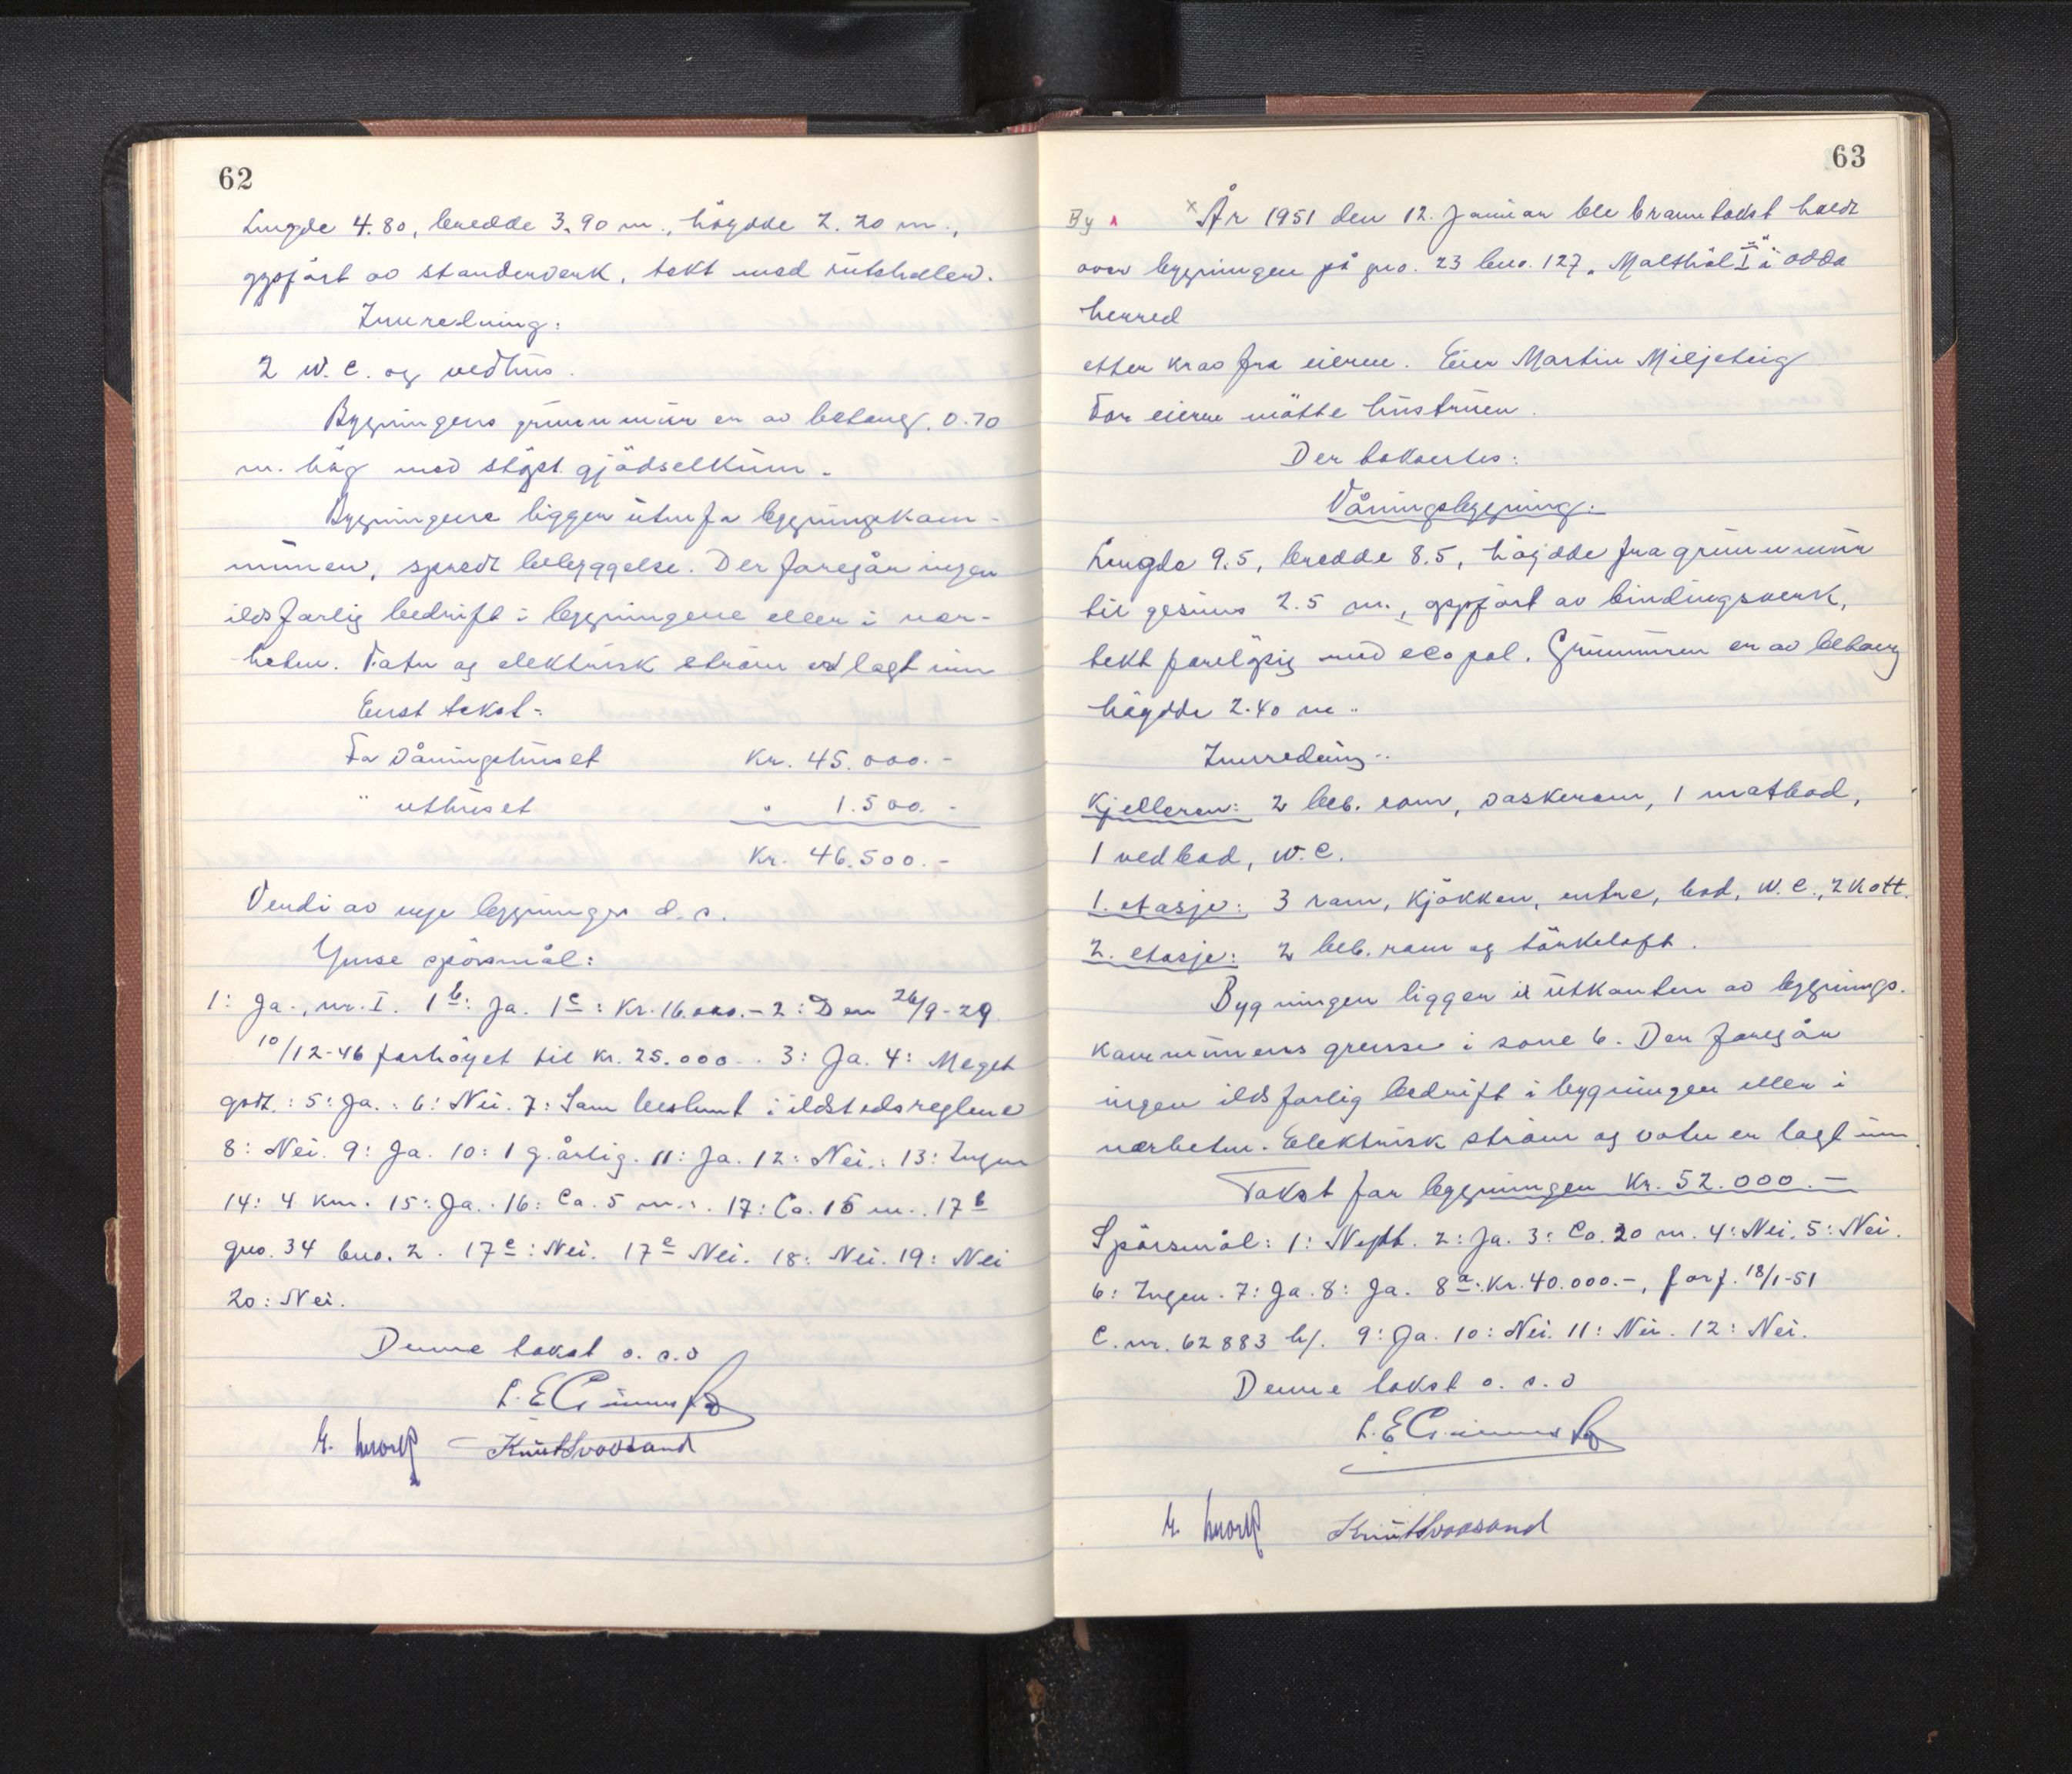 62
Lengde 4.80, bredde 3.90 m., høydde 2.20 m.,
oppført av standerverk, tekt med ruteheller.
Innredning:
2 W.C. og vedhus.
Bygningens grunnmur er av betong, 0.70
m. høg med støpt gjødselkum.
Bygningene ligger utenfor bygningskom-
munen, spredt bebyggelse. Der foregår ingen
ildsfarlig bedrift i bygningene eller i nær-
heten. Vatn og elektrisk strøm er lagt inn
Enst takst:
For våningshuset Kr. 45.000.-
" uthuset " 1.500.-
Kr. 46.500.-
Verdi av nye bygninger d.s.
Ymse spørsmål:
1: Ja., nr. I. 1b: Ja. 1c: Kr. 16.000.- 2: Den 26/9-29
10/12-46 forhøyet til kr. 25.000.. 3: Ja. 4: Meget
godt.: 5: Ja.: 6: Nei. 7: Som bestemt i ildstedsreglene
8: Nei. 9: Ja. 10: 1 g. årlig. 11: Ja. 12: Nei.: 13: Ingen
14: 4 km. 15: Ja.. 16: Ca. 5 m.. 17: Ca. 15 m.. 17b
gno. 34 bno. 2. 17c: Nei. 17e Nei. 18: Nei. 19: Nei
20: Nei.
Denne takst o.s.v
L. E.
Knut
63
By × År 1951 den 12. Januar ble branntakst holdt
over bygningen på gno. 23 bno. 127 „Malthål I" i Odda
herred
etter krav fra eieren. Eier Martin Miljeteig
For eieren møtte hustruen.
Der taksertes:
Våningsbygning:
Lengde 9.5, bredde 8.5, høydde fra grunnmur
til gesims 2.5 m., oppført av bindingsverk,
tekt foreløpig med ecopal. Grunnmuren er av betong
høydde 2.40 m..
Innredning..
Kjelleren: 2 beb. rom, vaskerom, 1 matbod,
1 vedbod, W.C.
1. etasje: 3 rom, kjøkken, entre, bod, W.C., 2 kott.
2. etasje: 2 beb. rom og tørkeloft.
Bygningen ligger i utkanten av bygnings-
kommunens grense i sone 6. Der foregår
ingen ildsfarlig bedrift i bygningen eller i
nærheten. Elektrisk strøm og vatn er lagt inn.
Takst for bygningen Kr. 52.000.-
Spørsmål: 1: Nytt. 2: Ja. 3: Ca. 20 m. 4: Nei. 5: Nei.
6: Ingen. 7: Ja. 8: Ja. 8a: Kr. 40.000.-, forf. 18/1-51
C. nr. 62883 bf. 9: Ja. 10: Nei. 11: Nei. 12: Nei.
Denne takst o.s.v
L. E.
Knut